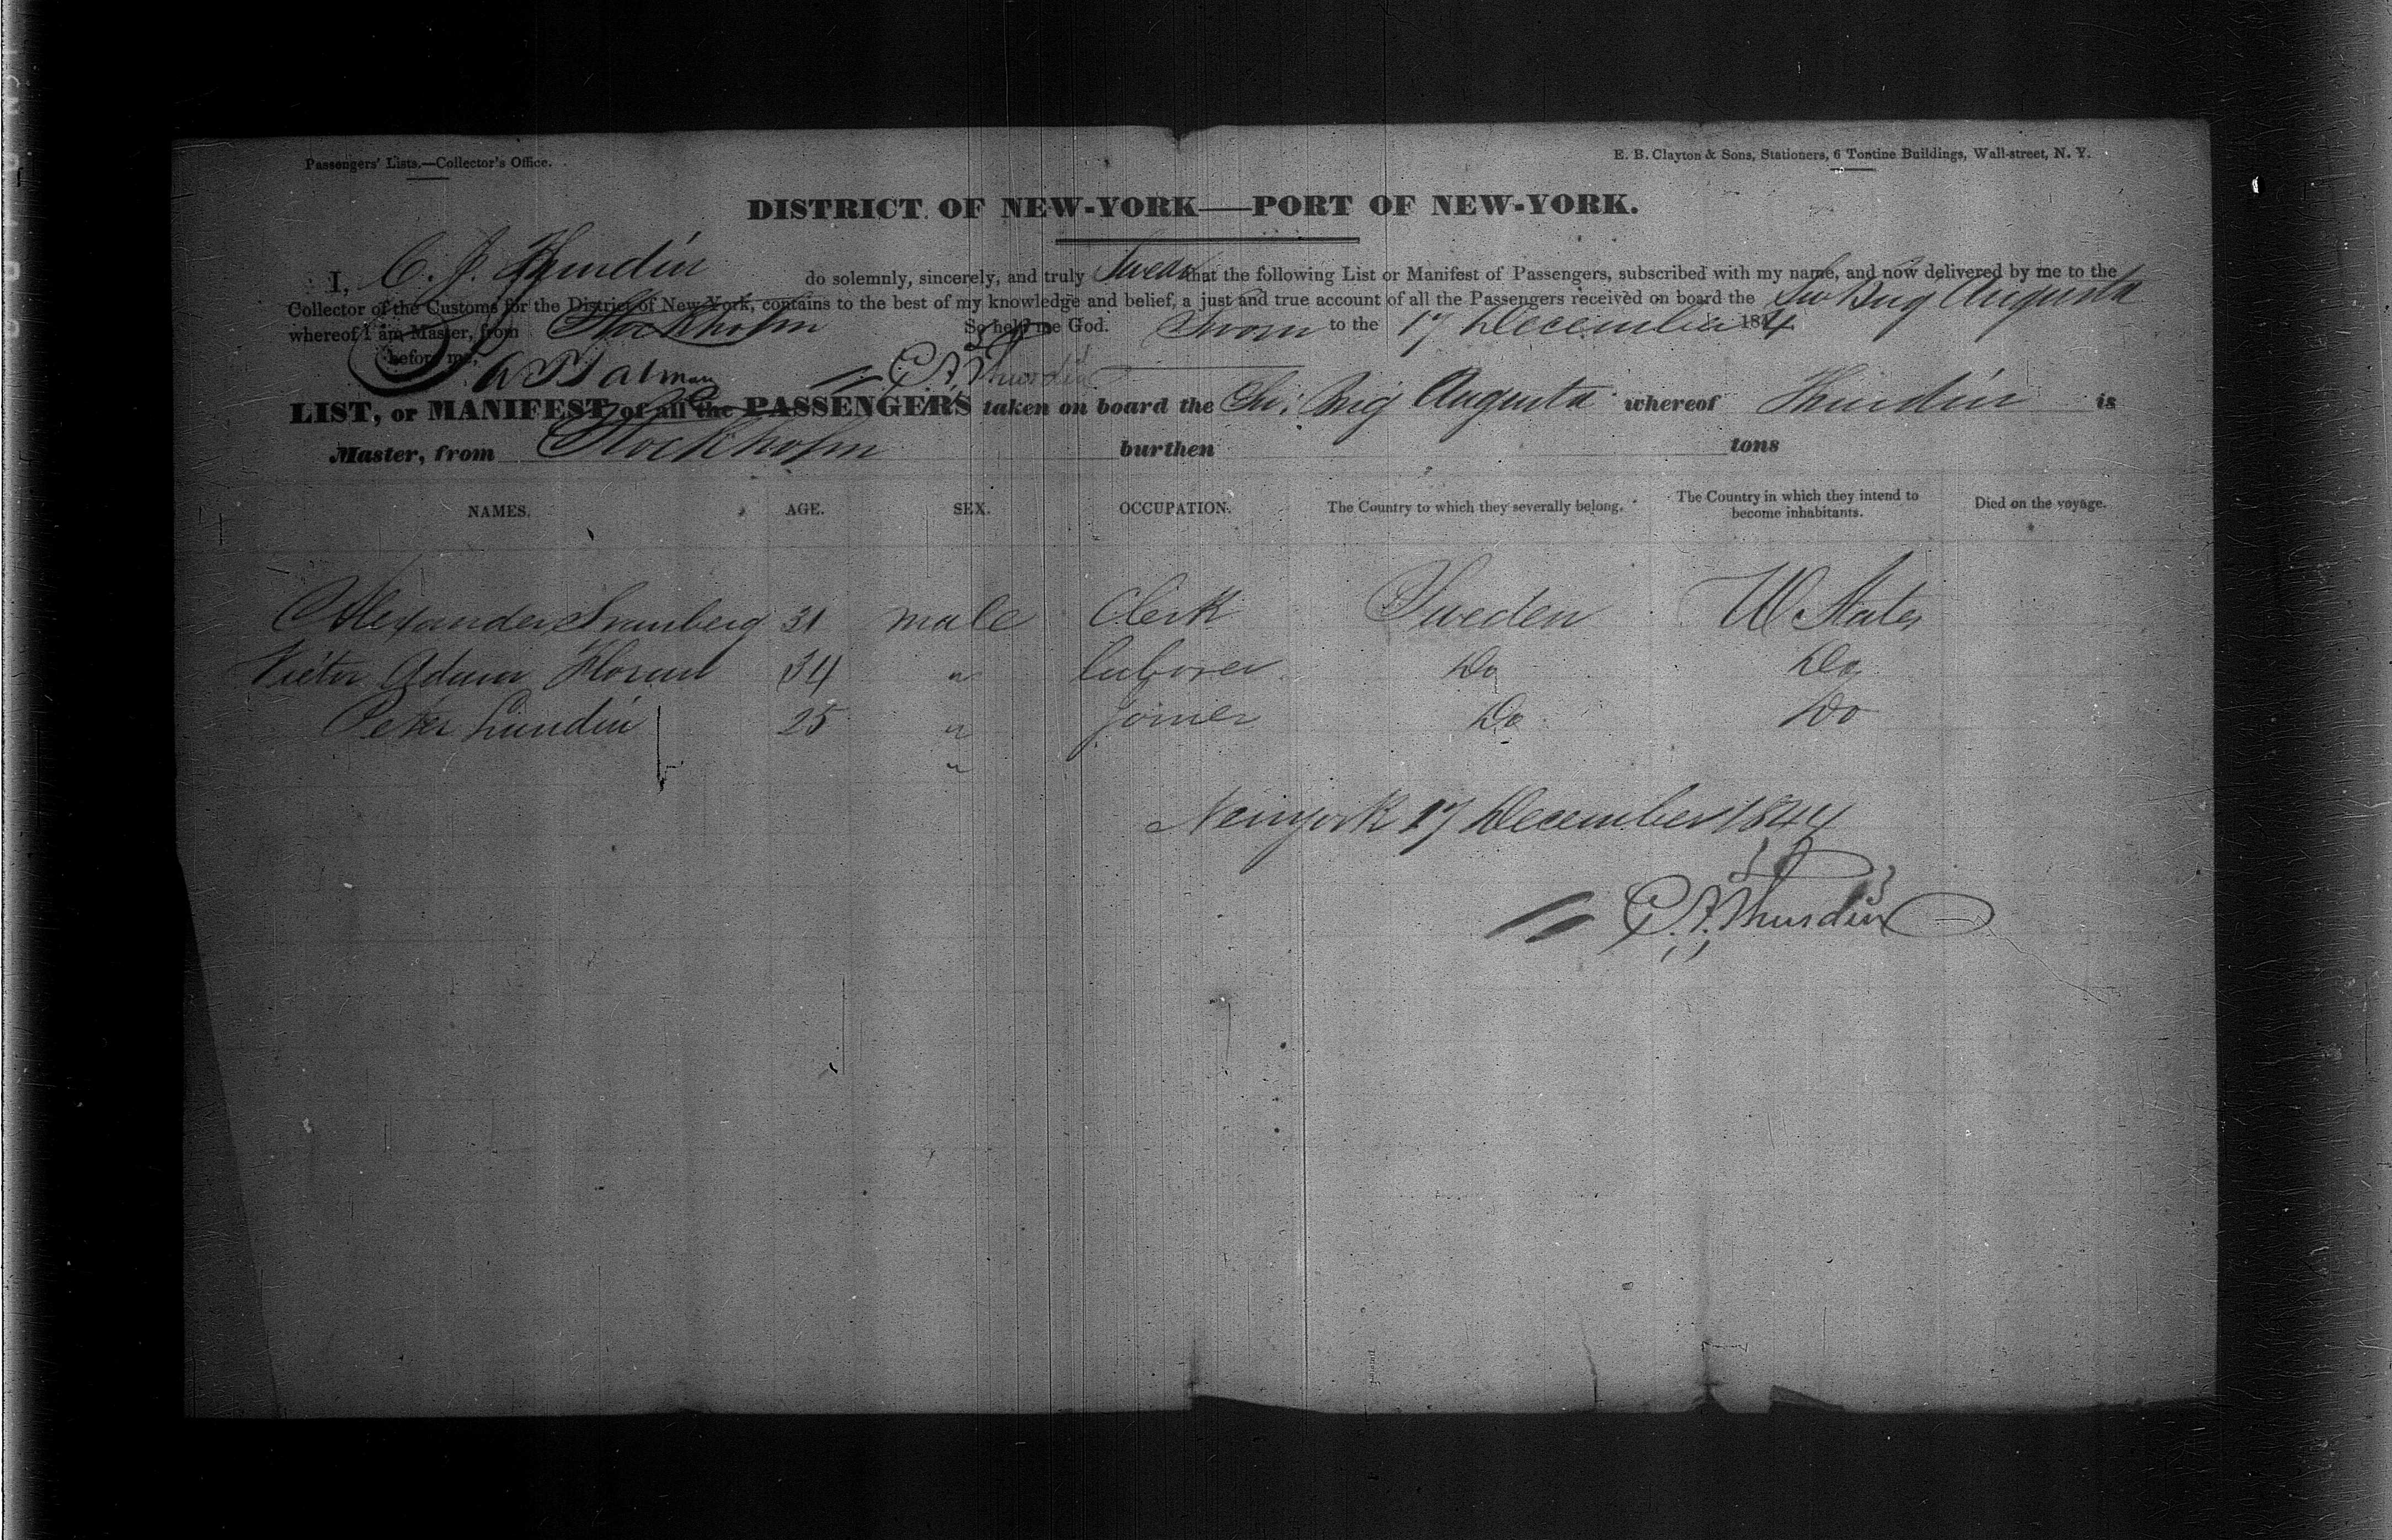 Passengers' Lists.—Collector's Office.
E. B. Clayton & Sons, Stationers, 6 Tontine Buildings, Wall-street, N. Y.
DISTRICT OF NEW-YORK—PORT OF NEW-YORK.
I, C. J. do solemnly, sincerely, and truly Swear that the following List or Manifest of Passengers, subscribed with my name, and now delivered by me to the
Collector of the Customs for the District of New York, contains to the best of my knowledge and belief, a just and true account of all the Passengers received on board the Sw Brig Augusta
whereof I am Master, from Stockholm So help me God. Sworn to the 17 December 184
before me,
LIST, or MANIFEST of all the PASSENGERS taken on board the Sw: Brig Augusta whereof is
Master, from Stockholm burthen tons
NAMES. AGE. SEX. OCCUPATION. The Country to which they severally belong. The Country in which they intend to become inhabitants. Died on the voyage.
Alexander 31 male Clerk Sweden U States
Victor Adam 34 " laborer Do Do
Peter Lundin 25 " joiner Do Do
"
Newyork 17 December 1844